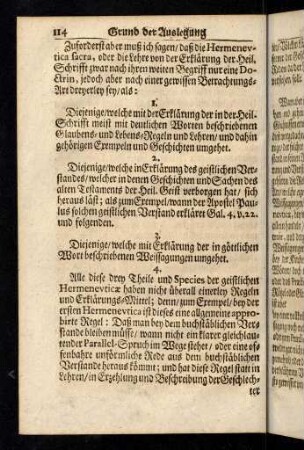 114 Grund der Auslegung
Zuforderst aber muß ich sagen/ daß die Hermenevtica
sacra, oder die Lehre von der Erklärung der Heil.
Schrifft zwar nach ihren weiten Begriff nur eine Doctrin,
jedoch aber nach einer gewissen Betrachtungs-
Art dreyerley sey/ als:
1.
Diejenige/ welche mit der Erklärung der in der Heil.
Schrifft meist mit deutlichen Worten beschriebenen
Glaubens- und Lebens-Regeln und Lehren/ und dahin
gehörigen Exempeln und Geschichten umgehet.
2.
Diejenige/ welche in Erklärung des geistlichen Verstandes/
welchen in deren Geschichten und Sachen des
alten Testaments der Heil. Geist verborgen hat/ sich
heraus läst; als zum Exempel/ wann der Apostel Paulus
solchen geistlichen Verstand erkläret Gal. 4, v. 22.
und folgenden.
3.
Diejenige/ welche mit Erklärung der in göttlichen
Wort beschriebenen Weissagungen umgehet.
4.
Alle diese drey Theile und Species der geistlichen
Hermenevticæ haben nicht überall einerley Regeln
und Erklärungs-Mittel; denn/ zum Exempel/ bey der
ersten Hermenevtica ist dieses eine allgemeine approbirte
Regel: Daß man bey dem buchstäblichen Verstande
bleiben müsse/ wann nicht ein klarer gleichlautender
Parallel-Spruch im Wege stehet/ oder eine offenbahre
unförmliche Rede aus dem buchstäblichen
Verstande heraus kömmt; und hat diese Regel statt in
Lehren/ in Erzehlung und Beschreibung der Geschlech-
ter